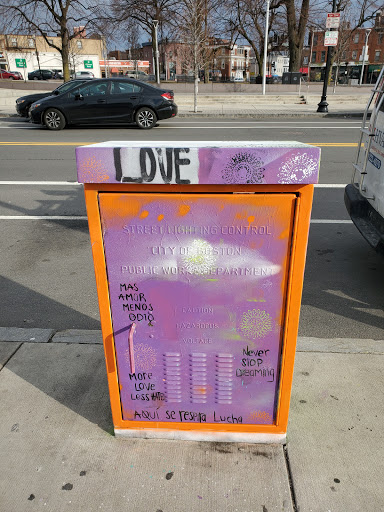 LOVE
STREET LIGHTING CONTROL
CITY OF BOSTON
PUBLIC WORKS DEPARTMENT
CAUTION
HAZARDOUS
VOLTAGE
MAS
AMOR
MENOS
ODIO
MORE
LOVE
LESS HATE
Never
STOP
Dreaming
AQUÍ Se reSpeta Lucha